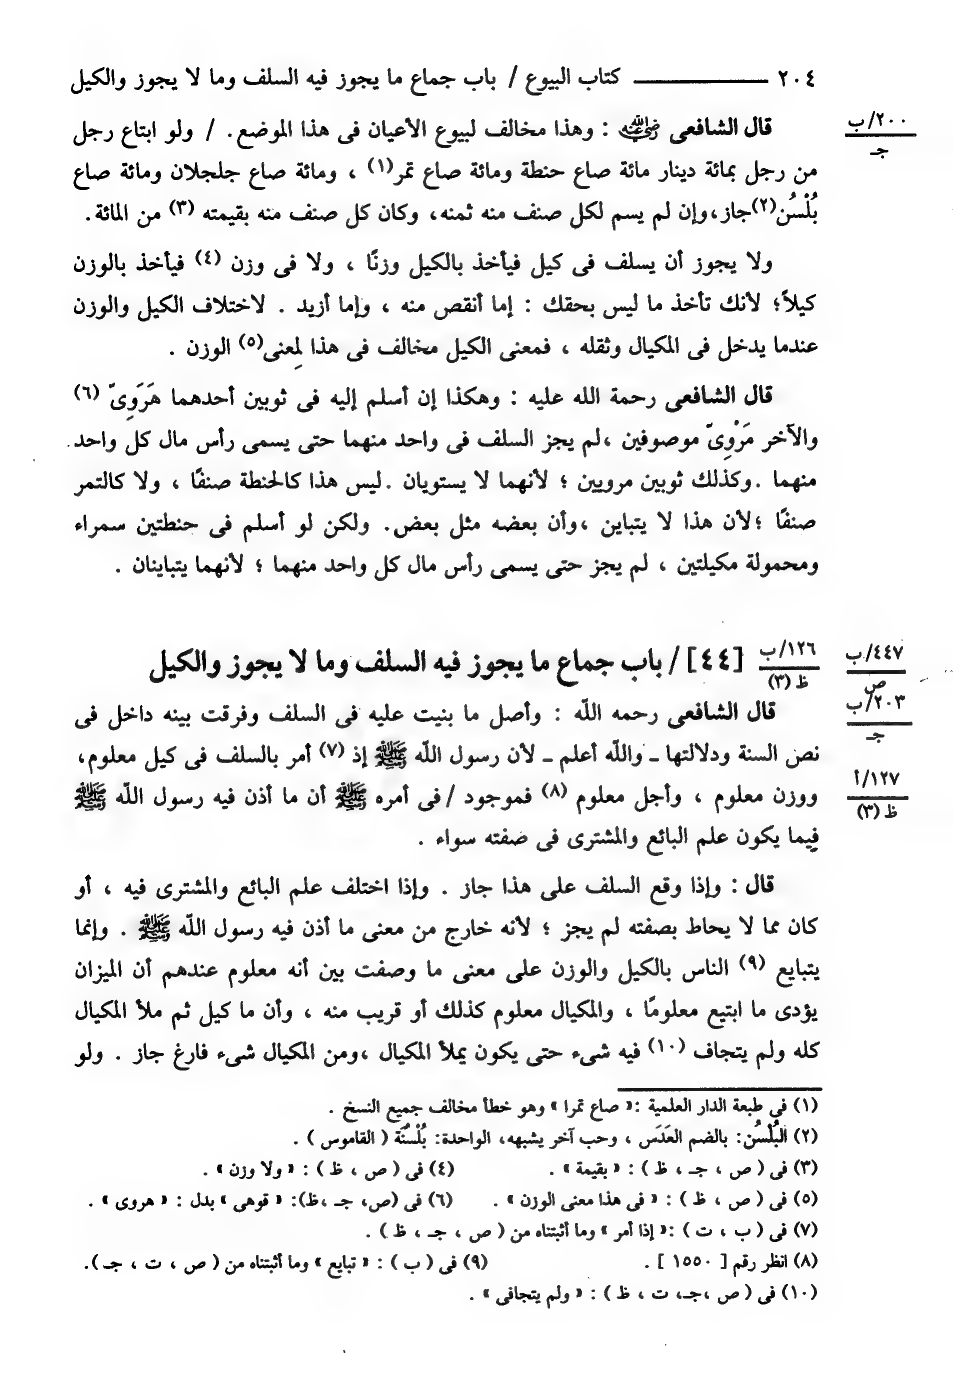 ٢٠٤ ــــــــــ كتاب البيوع / باب جماع ما يجوز فيه السلف وما لا يجوز والكيل
قال الشافعى رضي الله عنه : وهذا مخالف لبيوع الأعيان فى هذا الموضع. / ولو ابتاع رجل
٢٠٠/ب
جـ
من رجل بمائة دينار مائة صاع حنطة ومائة صاع تمر(١) ، ومائة صاع جلجلان ومائة صاع
بُلْسُن(٢)جاز،وإن لم يسم لكل صنف منه ثمنه، وكان كل صنف منه بقيمته (٣) من المائة.
ولا يجوز أن يسلف فى كيل فيأخذ بالكيل وزنًا ، ولا فى وزن (٤) فيأخذ بالوزن
كيلاً؛ لأنك تأخذ ما ليس بحقك : إما أنقص منه ، وإما أزيد . لاختلاف الكيل والوزن
عندما يدخل فى المكيال وثقله ، فمعنى الكيل مخالف فى هذا لِمعنى(٥) الوزن .
قال الشافعى رحمة الله عليه : وهكذا إن أسلم إليه فى ثوبين أحدهما هَرَوِىّ (٦)
والآخر مَرْوِىّ موصوفين ،لم يجز السلف فى واحد منهما حتى يسمى رأس مال كل واحد
منهما .وكذلك ثوبين مرويين ؛ لأنهما لا يستويان .ليس هذا كالحنطة صنفًا ، ولا كالتمر
صنفًا ؛لأن هذا لا يتباين ،وأن بعضه مثل بعض. ولكن لو أسلم فى حنطتين سمراء
ومحمولة مكيلتين ، لم يجز حتى يسمى رأس مال كل واحد منهما ؛ لأنهما يتباينان .
٤٤٧/ب
ص
١٢٦/ب
ظ (٣)
[٤٤] / باب جماع ما يجوز فيه السلف وما لا يجوز والكيل
٢٠٣/ب
جـ
قال الشافعى رحمه الله : وأصل ما بنيت عليه فى السلف وفرقت بينه داخل فى
نص السنة ودلالتها ـ والله أعلم ـ لأن رسول الله ﷺ إذ (٧) أمر بالسلف فى كيل معلوم،
١٢٧/أ
ظ (٣)
ووزن معلوم ، وأجل معلوم (٨) فموجود / فى أمره ﷺ أن ما أذن فيه رسول الله ﷺ
فيما يكون علم البائع والمشترى فى صفته سواء .
قال : وإذا وقع السلف على هذا جاز . وإذا اختلف علم البائع والمشترى فيه ، أو
كان مما لا يحاط بصفته لم يجز ؛ لأنه خارج من معنى ما أذن فيه رسول الله ﷺ . وإنما
يتبايع (٩) الناس بالكيل والوزن على معنى ما وصفت بين أنه معلوم عندهم أن الميزان
يؤدى ما ابتيع معلومًا ، والمكيال معلوم كذلك أو قريب منه ، وأن ما كيل ثم ملأ المكيال
كله ولم يتجاف (١٠) فيه شىء حتى يكون يملأ المكيال ،ومن المكيال شىء فارغ جاز . ولو
(١) فى طبعة الدار العلمية :« صاع تمرا » وهو خطأ مخالف جميع النسخ .
(٢) البُلْسُن: بالضم العَدَس ، وحب آخر يشبهه، الواحدة: بُلْسُنَة ( القاموس ) .
(٣) فى ( ص ، جـ ، ظ ) : « بقيمة » . (٤) فى ( ص ، ظ ) : « ولا وزن » .
(٥) فى ( ص ، ظ ) : « فى هذا معنى الوزن » . (٦) فى (ص، جـ ،ظ): « قوهى » بدل : « هروى » .
(٧) فى ( ب ، ت ) :« إذا أمر » وما أثبتناه من ( ص ، جـ ، ظ ) .
(٨) انظر رقم [ ١٥٥٠ ] . (٩) فى ( ب ) : « تبايع » وما أثبتناه من ( ص ، ت ، جـ ).
(١٠) فى ( ص ،جـ، ت ، ظ ) : « ولم يتجافى » .